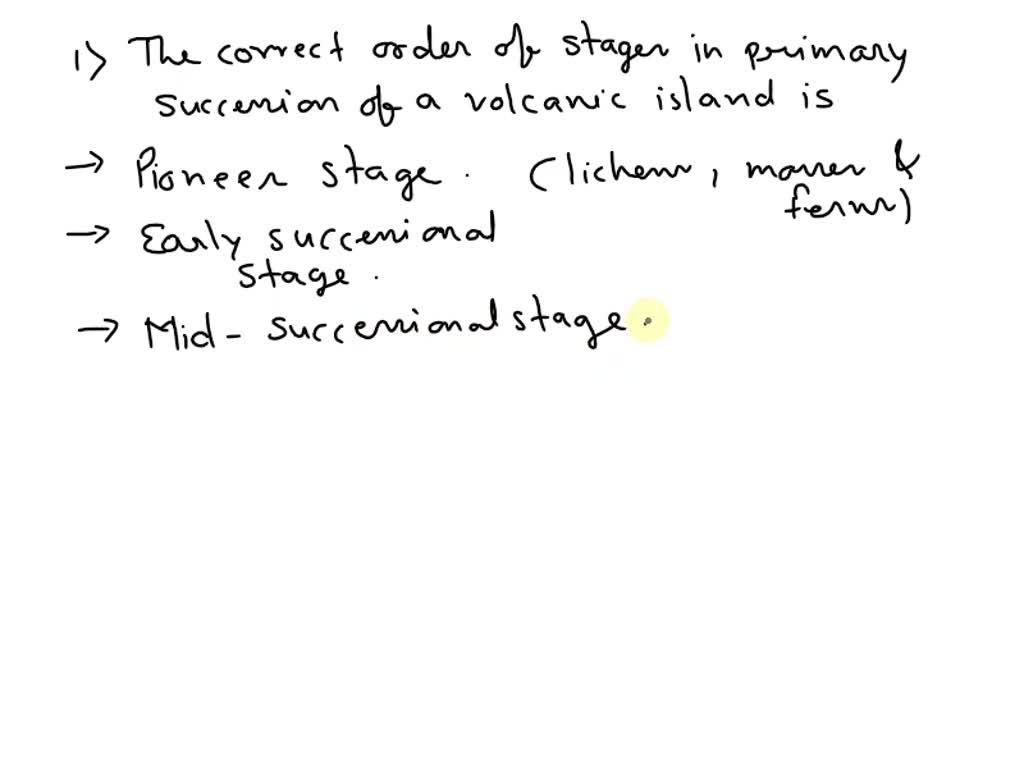 1) The correct order of stages in primary
succession of a volcanic island is
→ Pioneer stage. (lichens, mosses &
ferns)
→ Early successional
stage.
→ Mid - successional stage.